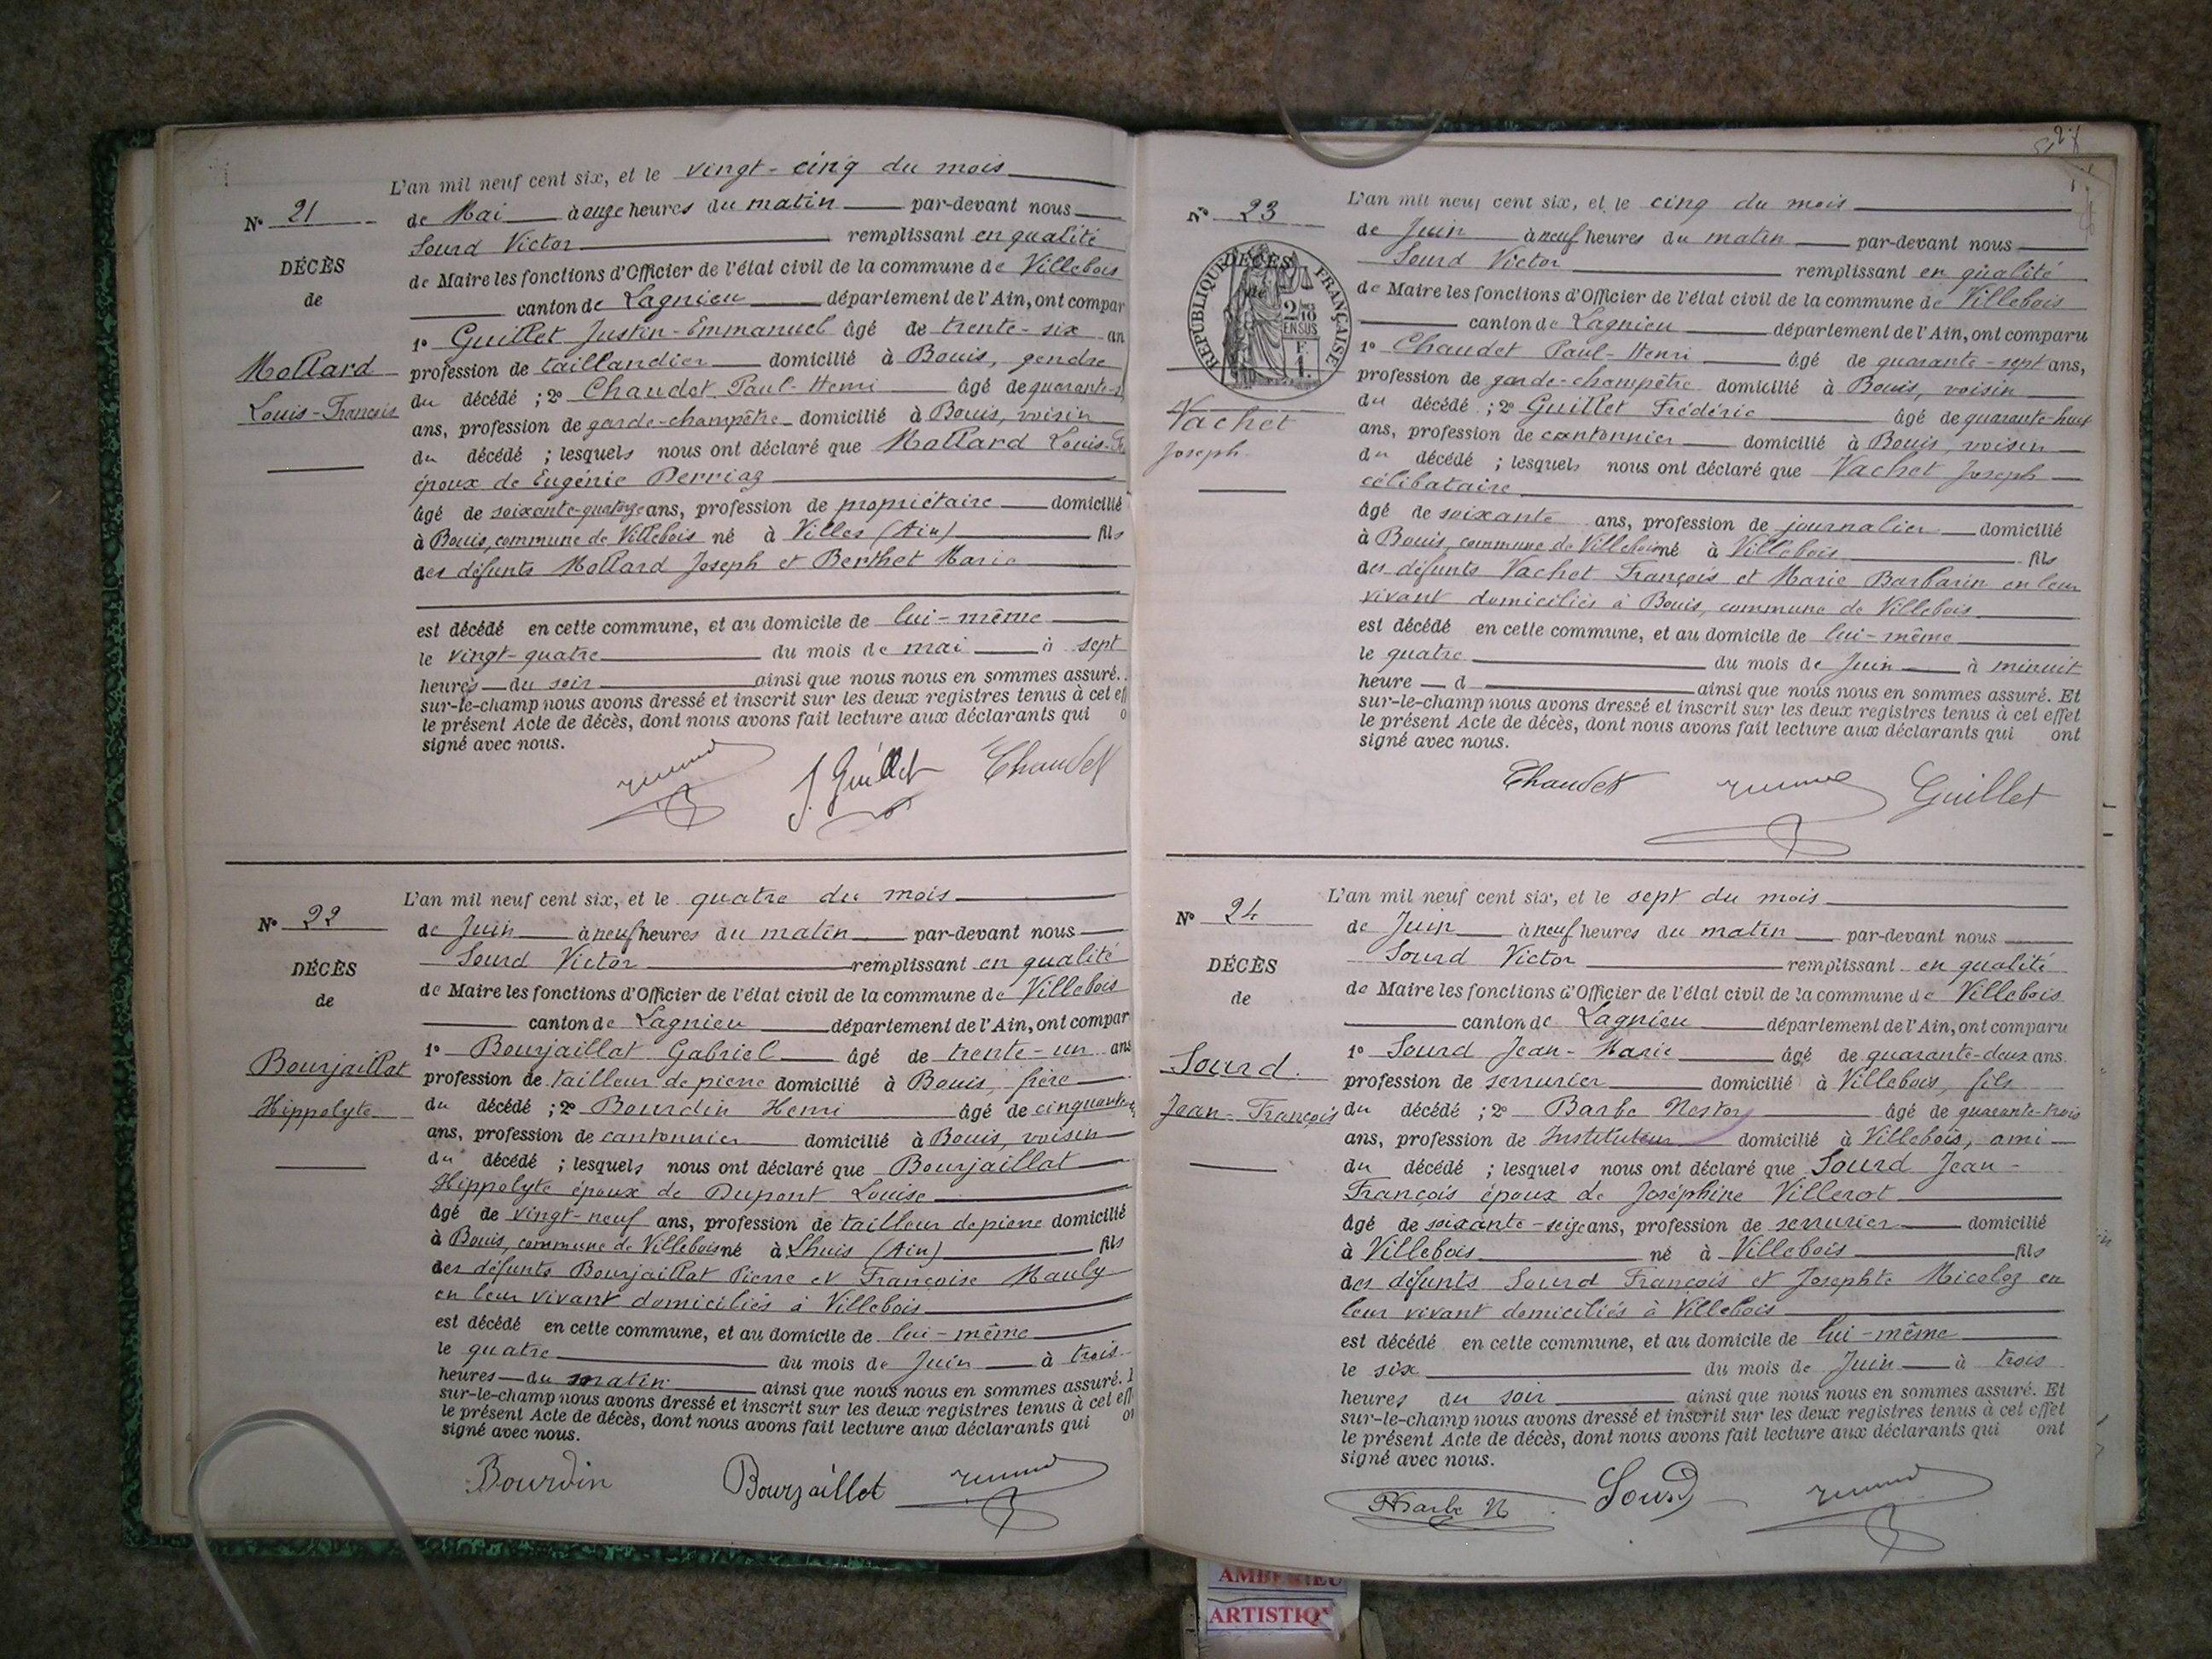 L'an mil neuf cent six, et le vingt-cinq du mois
N° 21
de Mai à onze heures du matin par-devant nous
Sourd Victor remplissant en qualité
DÉCÈS
de Maire les fonctions d'Officier de l'état civil de la commune de Villebois
de
canton de Lagnieu département de l'Ain, ont compar
1° Guillet Justin-Emmanuel âgé de trente-six an
Mollard
profession de taillandier domicilié à Bouis, gendre
Louis-François
du décédé ; 2° Chaudet Paul-Henri âgé de quarante-s
ans, profession de garde-champêtre domicilié à Bouis, voisin
du décédé ; lesquels nous ont déclaré que Mollard Louis-Fr
époux de Eugénie Perriaz
âgé de soixante-quatorze ans, profession de propriétaire domicilié
à Bouis, commune de Villebois né à Villes (Ain) fils
des défunts Mollard Joseph et Berthet Marie
est décédé en cette commune, et au domicile de lui-même
le vingt-quatre du mois de mai à sept
heures du soir ainsi que nous nous en sommes assuré.
sur-le-champ nous avons dressé et inscrit sur les deux registres tenus à cet eff
le présent Acte de décès, dont nous avons fait lecture aux déclarants qui o
signé avec nous.
J. Guillet Chaudet
L'an mil neuf cent six, et le quatre du mois
N° 22
de Juin à neuf heures du matin par-devant nous
Sourd Victor remplissant en qualité
DÉCÈS
de Maire les fonctions d'Officier de l'état civil de la commune de Villebois
de
canton de Lagnieu département de l'Ain, ont compar
1° Bourjaillat Gabriel âgé de trente-un ans
Bourjaillat
profession de tailleur de pierre domicilié à Bouis, frère
Hippolyte
du décédé ; 2° Bourdin Henri âgé de cinquante
ans, profession de cantonnier domicilié à Bouis, voisin
du décédé ; lesquels nous ont déclaré que Bourjaillat
Hippolyte époux de Dupont Louise
âgé de vingt-neuf ans, profession de tailleur de pierre domicilié
à Bouis, commune de Villebois né à Lhuis (Ain) fils
des défunts Bourjaillat Pierre et Françoise Mauly
en leur vivant domiciliés à Villebois
est décédé en cette commune, et au domicile de lui-même
le quatre du mois de Juin à trois
heures du matin ainsi que nous nous en sommes assuré. E
sur-le-champ nous avons dressé et inscrit sur les deux registres tenus à cet eff
le présent Acte de décès, dont nous avons fait lecture aux déclarants qui on
signé avec nous.
Bourdin Bourjaillat
L'an mil neuf cent six, et le cinq du mois
N° 23
de Juin à neuf heures du matin par-devant nous
Sourd Victor remplissant en qualité
DÉCÈS
RÉPUBLIQUE FRANÇAISE
2/10 EN SUS
F. 1.
de Maire les fonctions d'Officier de l'état civil de la commune de Villebois
canton de Lagnieu département de l'Ain, ont comparu
1° Chaudet Paul-Henri âgé de quarante-sept ans,
profession de garde-champêtre domicilié à Bouis, voisin
Vachet
du décédé ; 2° Guillet Frédéric âgé de quarante-huit
ans, profession de cantonnier domicilié à Bouis, voisin
Joseph
du décédé ; lesquels nous ont déclaré que Vachet Joseph
célibataire
âgé de soixante ans, profession de journalier domicilié
à Bouis, commune de Villebois né à Villebois fils
des défunts Vachet François et Marie Barbarin en leur
vivant domiciliés à Bouis, commune de Villebois
est décédé en cette commune, et au domicile de lui-même
le quatre du mois de Juin à minuit
heure d ainsi que nous nous en sommes assuré. Et
sur-le-champ nous avons dressé et inscrit sur les deux registres tenus à cet effet
le présent Acte de décès, dont nous avons fait lecture aux déclarants qui ont
signé avec nous.
Chaudet Guillet
L'an mil neuf cent six, et le sept du mois
N° 24
de Juin à neuf heures du matin par-devant nous
Sourd Victor remplissant en qualité
DÉCÈS
de Maire les fonctions d'Officier de l'état civil de la commune de Villebois
de
canton de Lagnieu département de l'Ain, ont comparu
1° Sourd Jean-Marie âgé de quarante-deux ans
Sourd.
profession de serrurier domicilié à Villebois, fils
Jean-François
du décédé ; 2° Barbe Nestor âgé de quarante-trois
ans, profession de Instituteur domicilié à Villebois, ami
du décédé ; lesquels nous ont déclaré que Sourd Jean-
François époux de Joséphine Villerot
âgé de soixante-seize ans, profession de serrurier domicilié
à Villebois né à Villebois fils
des défunts Sourd François et Josephte Micoloz en
leur vivant domiciliés à Villebois
est décédé en cette commune, et au domicile de lui-même
le six du mois de Juin à trois
heures du soir ainsi que nous nous en sommes assuré. Et
sur-le-champ nous avons dressé et inscrit sur les deux registres tenus à cet effet
le présent Acte de décès, dont nous avons fait lecture aux déclarants qui ont
signé avec nous.
Barbe N Sourd
ARTISTIQ